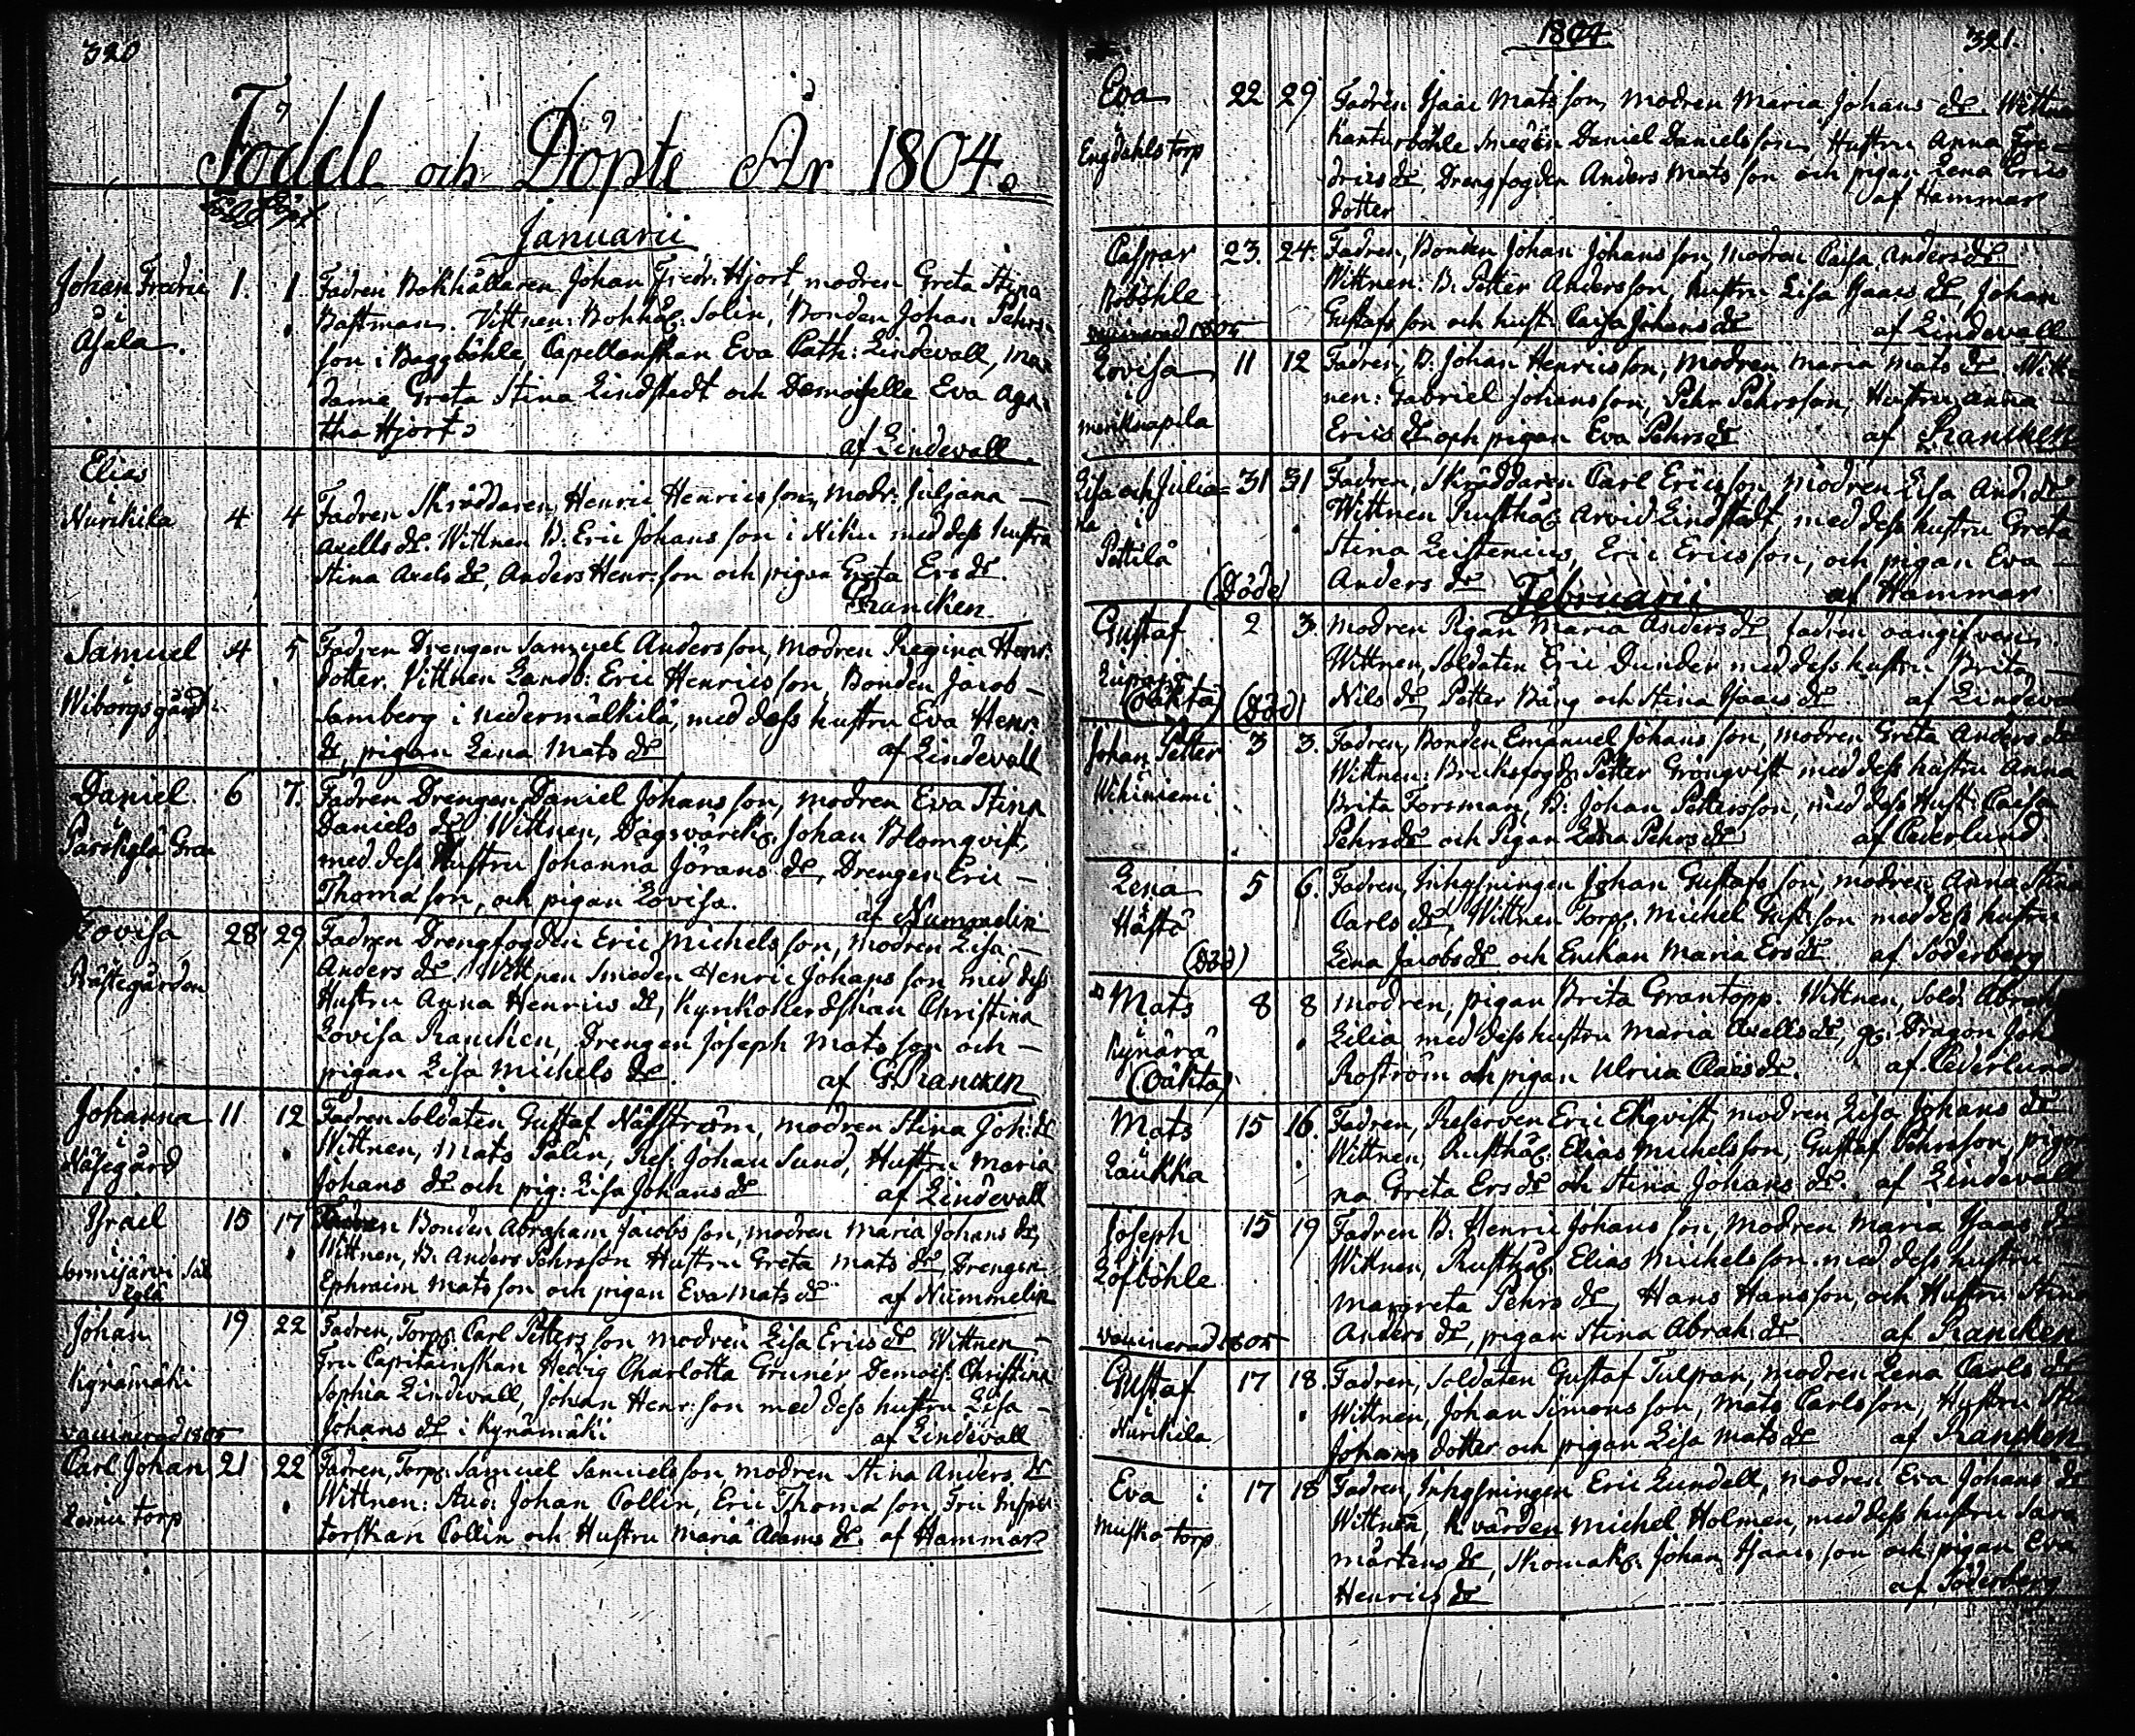 320
Födde och Döpte År 1804.
Född Döpt
Januarii
Johan Fredric
i
Åjala.
1. 1
Fadren Bokhållaren Johan Fredr: Hjort, modren Greta Stina
Bastman. Vittnen: Bokhål: Solin, Bonden Johan Pehrs
son i Baggböhle, Capellanskan Eva Cath: Lindevall, Ma-
dame Greta Stina Lindstedt och Demoiselle Eva Aga-
tha Hjort.
af Lindevall.
Elias
i
Nurikila
4 4
Fadren Skräddaren Henric Henricsson, modr: Juliana
Axells dr. Wittnen B: Eric Johansson i Niku med dess hustru
Stina Axels dr, Anders Henr:son och pigan Greta Ers dr.
Francken.
Samuel
i
Wiborgsgård
4 5
Fadren Drengen Samuel Andersson, modren Regina Henr:
dotter. Vittnen Landb: Eric Henricsson, Bonden Jacob
Samberg i nedermälkilä, med dess hustru Eva Henr:
dr, pigan Lena Mats dr
af Lindevall
Daniel
i
6 7.
Fadren Drengen Daniel Johansson, modren Eva Stina
Daniels dr Wittnen, Dagsvärck: Johan Blomqvist,
med dess Hustru Johanna Jörans dr, Drengen Eric
Thomasson, och pigan Lovisa.
af Nummelin
Lovisa
Prästegården
28 29
Fadren Drengfogden Eric Michelsson, modren Lisa
Anders dr. Vittnen Smeden Henric Johansson med dess
Hustru Anna Henrics dr, Kyrkoherdskan Christina
Lovisa Rancken, Drengen Joseph Matsson och
pigan Lisa Michels dr.
af G. Rancken
Johanna
i
Näsegård
11 12
Fadren Soldaten Gustaf Näsström, modren Stina Joh: dr
Wittnen, Mats Palin, Res: Johan Sund, Hustru Maria
Johans dr och pig: Lisa Johans dr
af Lindevall
Israel
i
15 17
Fadren Bonden Abraham Jacobsson, modren Maria Johans dr,
Wittnen, B: Anders Pehrsson Hustru Greta Mats dr, Drengen
Ephraim Matsson och pigan Eva Mats dr
af Nummelin
Johan
Kynämäki
vaccinerad 1805
19 22
Fadren, Torp: Carl Pettersson modren Lisa Erics dr Wittnen
Fru Capitainskan Hedvig Charlotta Gruner, Demois: Christina
Sophia Lindevall, Johan Henr:son med dess hustru Lisa
Johans dr i Kynämäki
af Lindevall
Carl Johan
Lemu torp
21 22
Fadren, Torp: Samuel Samuelsson, modren Stina Anders dr
Wittnen: Aud: Johan Collin, Eric Thomasson, Fru Inspec
torskan Collin och Hustru Maria Adams dr.
af Hammar
1804
321.
Eva
Engdahls torp
22 29
Fadren Isaac Matsson, modren Maria Johans dr. Wittnen
Kanturböhle Smeden Daniel Danielsson, Hustru Anna Fre-
drics dr, Drengfogden Anders Matsson och pigan Lena Erics
dotter
af Hammar
Caspar
Böböhle
vaccinerad 1805
23. 24.
Fadren, Bonden Johan Johansson, modren Caisa Anders dr
Wittnen: B: Petter Andersson, hustru Lisa Isaacs dr, Johan
Gustafsson och hust: Caisa Johans dr
af Lindevall
Lovisa
i
11 12
Fadren, B: Johan Henricsson, modren Maria Mats dr Witt-
nen: Gabriel Johansson, Pehr Pehrsson, Hustru Anna
Erics dr och pigan Eva Pehrs dr
af Rancken
Lisa och Julia-
na
i
Pättilä
(Döde)
31 31
Fadren, Skräddaren Carl Ericsson modren Lisa And: dr
Wittnen Rusthål: Arvid Lindstedt med dess hustru Greta
Stina Leistenius, Eric Ericsson, och pigan Eva
Anders dr
af Hammar
Februarii
Gustaf
(oäkta) (död)
2 3.
Modren Pigan Maria Anders dr, fadren oangifven,
Wittnen, Soldaten Eric Dunder med dess hustru Brita
Nils dr, Petter Bång och Stina Isaacs dr
af Lindeva
Johan Petter
Wihiniemi
3 3.
Fadren, Bonden Emanuel Johansson, modren Greta Anders dr
Wittnen: Bruksfogd: Petter Grönqvist med dess hustru Anna
Brita Forsman, B: Johan Pettersson, med dess Hust: Caisa
Pehrs dr och Pigan Lena Pehrs dr
af Cederlund
Lena
Hästö
(död)
5 6.
Fadren, Inhysningen Johan Gustafsson, modren Anna Stina
Carls dr, Wittnen Torp: Michel Gust:son med dess hustru
Lena Jacobs dr och Enckan Maria Ers dr
af Söderberg
Mats
i
Kynärä
(Oäkta)
8 8
modren, pigan Brita Grantopp. Wittnen, Sold: Abrah
Lilia med dess hustru Maria Axells dr, g: Dragon Joh
Roström och pigan Ulrica Claes dr.
af Cederlund
Mats
Laukka
15 16.
Fadren, Reserven Eric Ekqvist, modren Lisa Johans dr
Wittnen, Rusthål: Elias Michelsson, Gustaf Pehrsson, pigor
na Greta Ers dr och Stina Johans dr.
af Lindevall
Joseph
Löfböhle
vaccinerad 1805
15 19
Fadren B: Henric Johansson, modren Maria Isaacs dr
Wittnen, Rusthål: Elias Michelsson med dess hustru
Margreta Pehrs dr, Hans Hansson, och Hustru Stina
Anders dr, pigan Stina Abrah: dr
af Rancken
Gustaf
i
Nurikila
17 18.
Fadren, Soldaten Gustaf Tulpan, modren Lena Carls dr
Wittnen, Johan Simonsson, Mats Carlsson, Hustru
Johans dotter och pigan Lisa Mats dr
af Rancken
Eva i
Muska torp
17 18
Fadren, Inhysningen Eric Lundell, modren Eva Johans dr
Wittnen, k. värden Michel Holmen, med dess hustru Sara
Mårtens dr, Skomak: Johan Isaacsson och pigan Eva
Henrics dr
af Söderberg